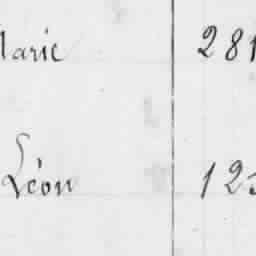 Marie 281
Léon 123